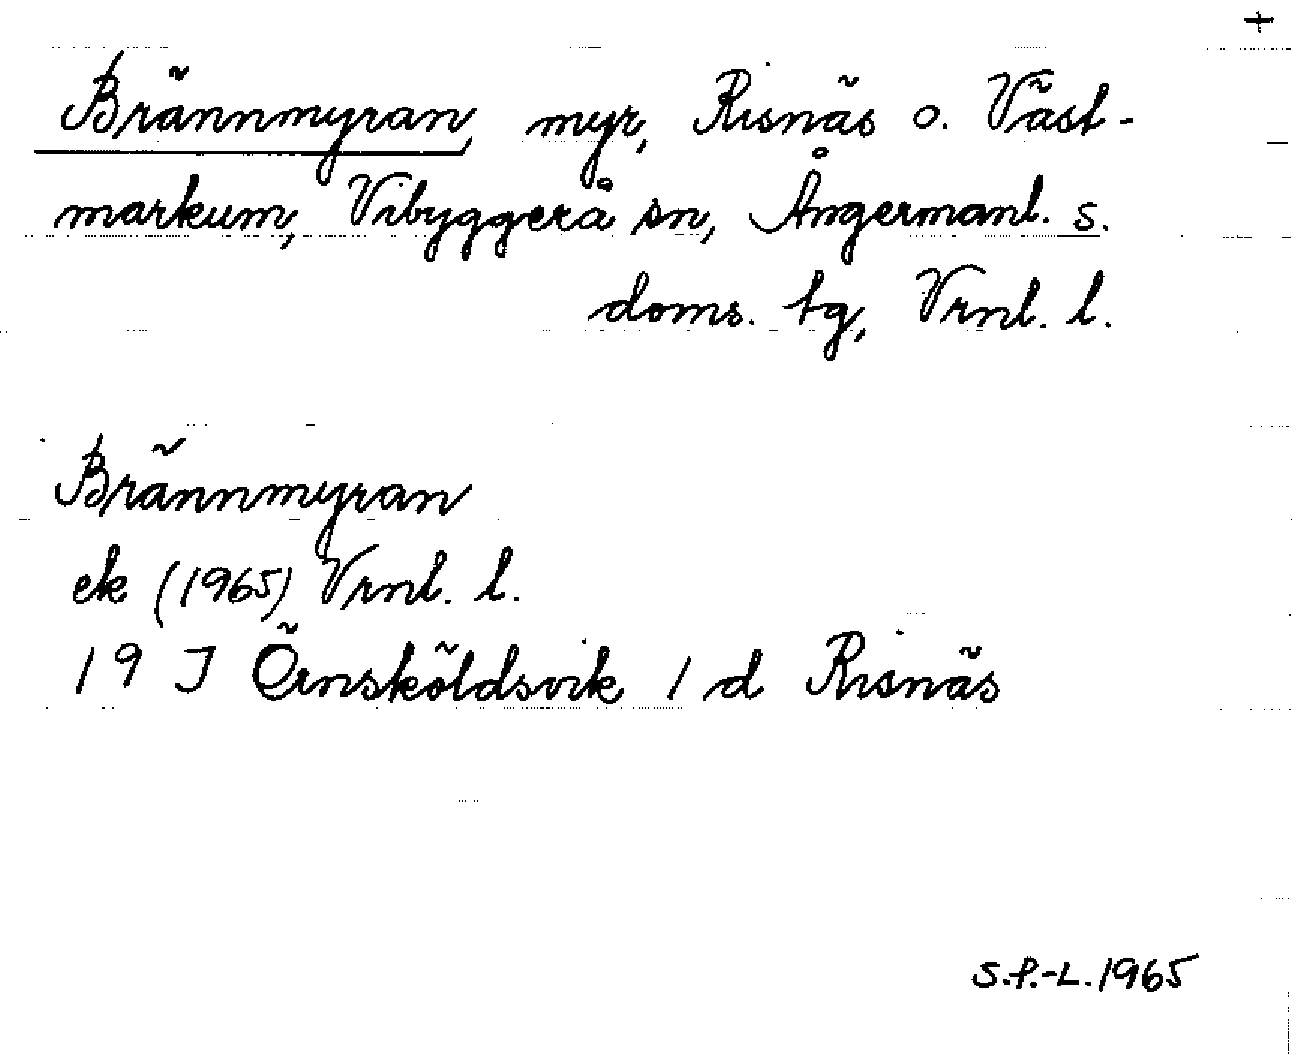 +
Brännmyran, myr, Risnäs o. Väst-
markum, Vibyggerå sn, Ångermanl. s.
doms. tg, Vrnl. l.
Brännmyran
ek (1965) Vrnl. l.
19 J Örnsköldsvik 1 d Risnäs
S.P.-L. 1965